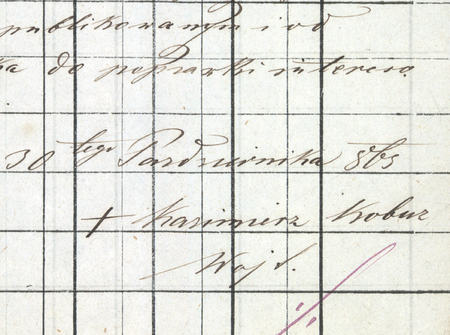 publikowanym i od
ka do poprawki interess.
30 tego Pazdziernika 865
+ Kazimierz Kobuz
Wojt.